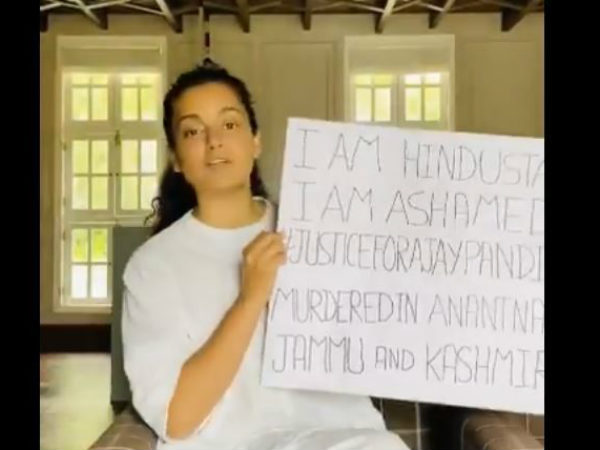 I AM HINDUSTA
I AM ASHAMED
#JUSTICEFORAJAYPANDI
MURDERED IN ANANTNA
JAMMU AND KASHMIR